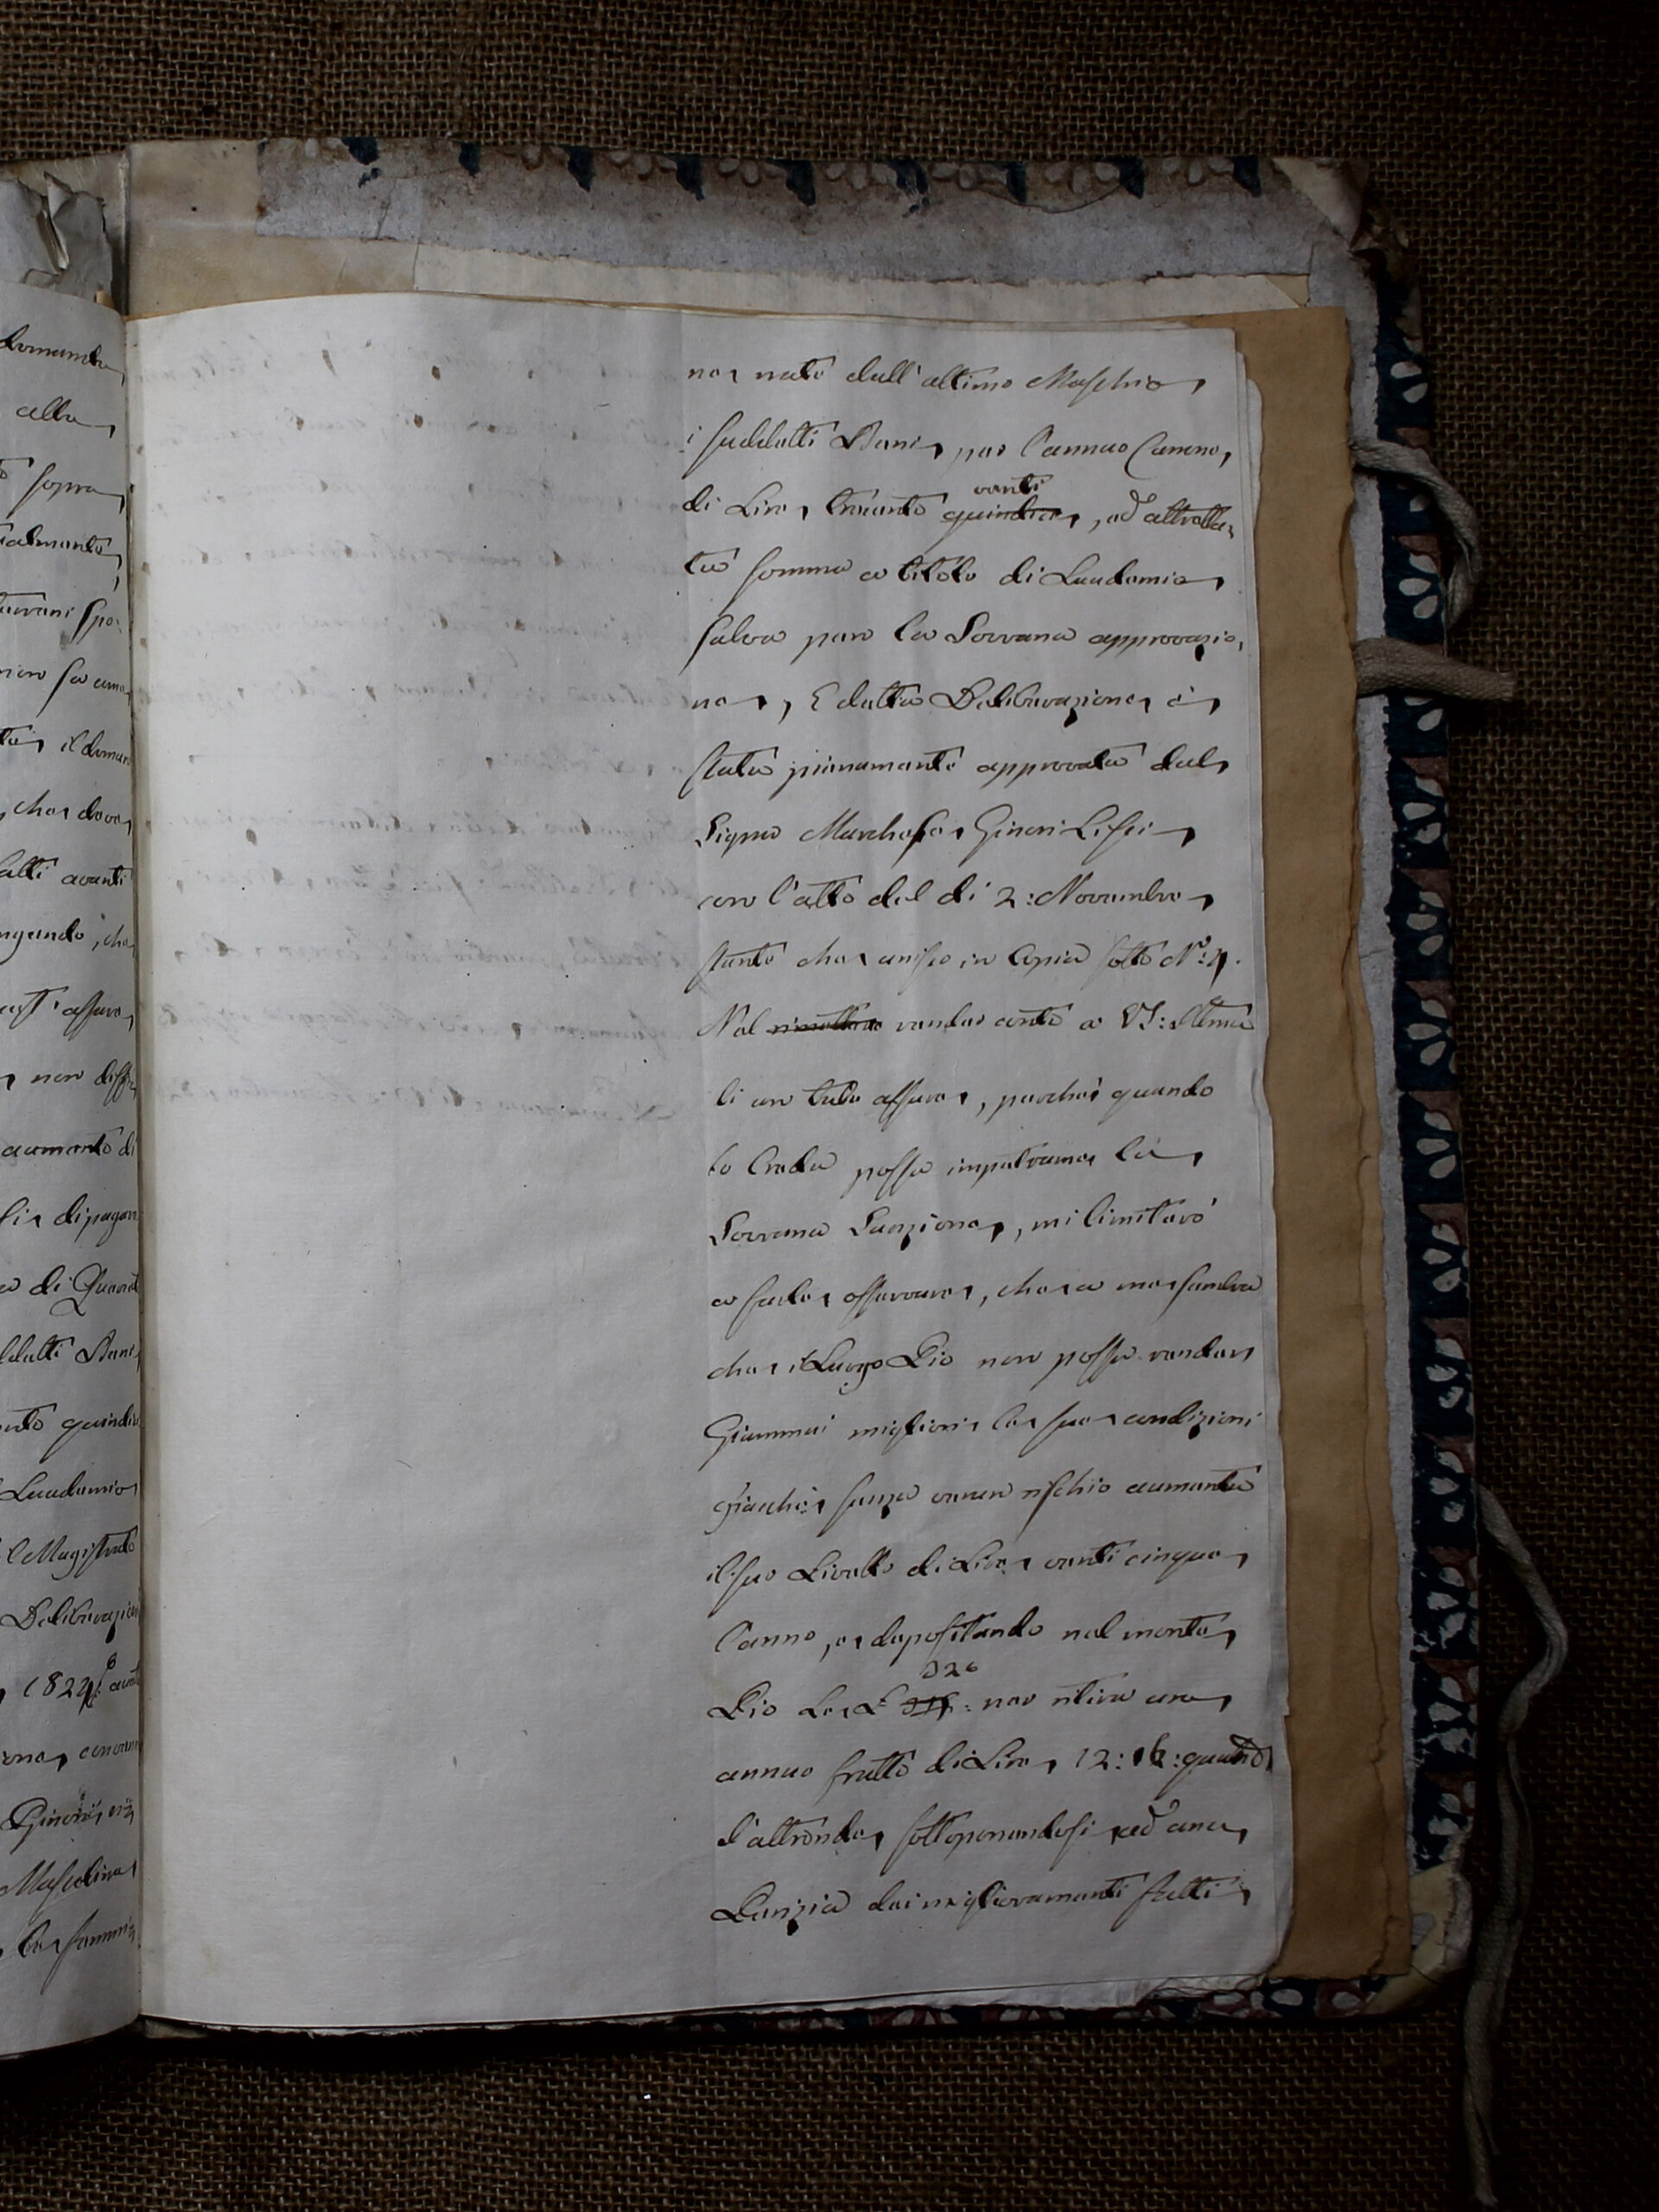 domanda
alla
sopra
ialmente
non fa ame
il doman
che deve
latti avanti
ngendo, che
affare
non diff
aumento di
di pagar
di Quarat
ddetti Beni
nto quindic
Laudemio
il Magistrato
Deliberazion
1822
Ginori
Mascolina
la somm
ne nato dall'ultimo Maschio
i suddetti Beni per l'annuo Canone
di Lire trecento quindici venti, ed altretta=
ta somma a titolo di Laudemio
salva però la Sovrana approvazio=
ne, E detta Deliberazione è
stata pienamente approvata dal
Signor Marchese Ginori Lisci
con l'atto del di 2: Novembre
stante che unisco in Copia sotto N°: 4.
Nel rimettere render conto a VS: Illma
di un tale affare, perche quando
lo creda possa impetrarne la
Sovrana Sanzione, mi limiterò
a farle osservare, che a me sembra
che il Luogo Pio non possa render
Giammai migliori le sue condizioni
giacchè senza verun rischio aumenta
il suo Livello di Lire venti cinque
l'anno, e depositando nel monte
Pio Le L 315: 320 ne ritira un
annuo frutto di Lire 12: 16: quand
d'altronde sottoponendosi ad una
Perizia dei miglioramenti fatti